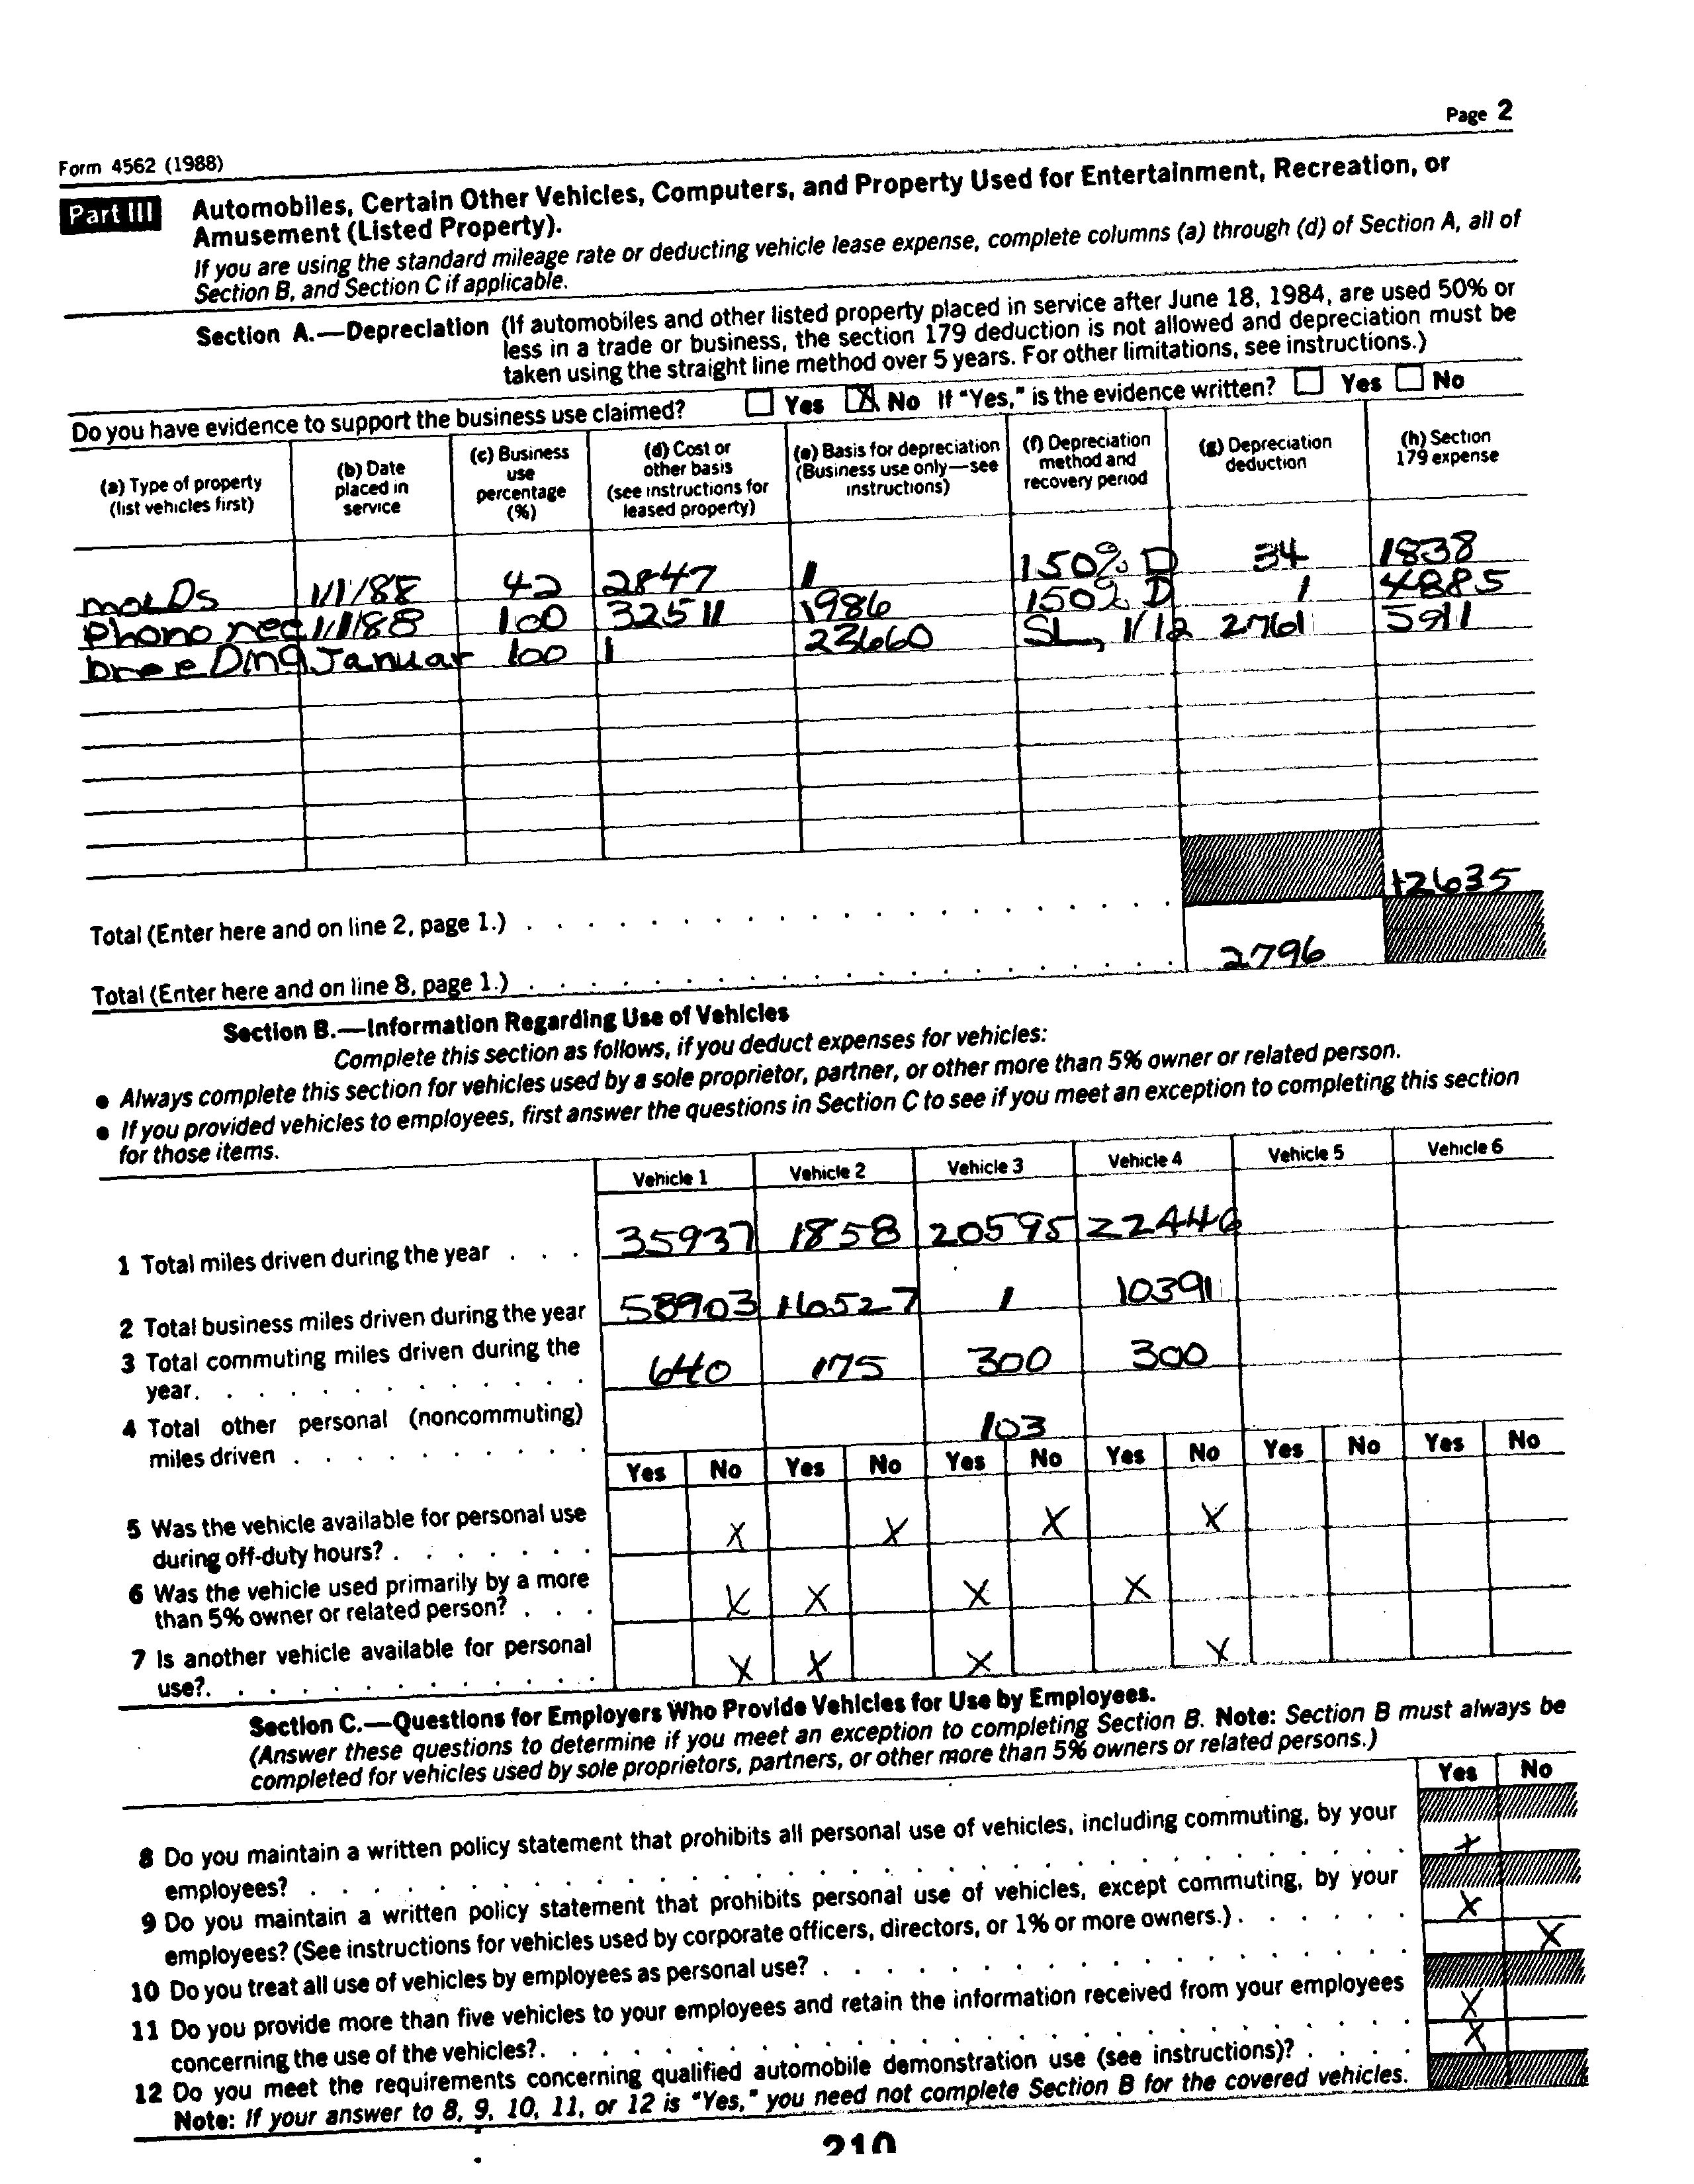 Page 2
Form 4562 (1988)
Part III Automobiles, Certain Other Vehicles, Computers, and Property Used for Entertainment, Recreation, or
Amusement (Listed Property).
If you are using the standard mileage rate or deducting vehicle lease expense, complete columns (a) through (d) of Section A, all of
Section B, and Section C if applicable.
Section A.—Depreciation (If automobiles and other listed property placed in service after June 18, 1984, are used 50% or
less in a trade or business, the section 179 deduction is not allowed and depreciation must be
taken using the straight line method over 5 years. For other limitations, see instructions.)
Do you have evidence to support the business use claimed? Yes X No If "Yes," is the evidence written? Yes No
(a) Type of property
(list vehicles first)
(b) Date
placed in
service
(c) Business
use
percentage
(%)
(d) Cost or
other basis
(see instructions for
leased property)
(e) Basis for depreciation
(Business use only—see
instructions)
(f) Depreciation
method and
recovery period
(g) Depreciation
deduction
(h) Section
179 expense
moLDs 1/1/88 42 2847 1 150% D 34 1838
Phono rec 1/1/88 100 32511 1986 150% D 1 4885
breeDing Januar 100 1 23660 SL, 1/12 2761 5911
12635
Total (Enter here and on line 2, page 1.)
2796
Total (Enter here and on line 8, page 1.)
Section B.—Information Regarding Use of Vehicles
Complete this section as follows, if you deduct expenses for vehicles:
● Always complete this section for vehicles used by a sole proprietor, partner, or other more than 5% owner or related person.
● If you provided vehicles to employees, first answer the questions in Section C to see if you meet an exception to completing this section
for those items.
Vehicle 1 Vehicle 2 Vehicle 3 Vehicle 4 Vehicle 5 Vehicle 6
1 Total miles driven during the year . . . 35937 1858 20595 22446
2 Total business miles driven during the year 58903 16527 1 10391
3 Total commuting miles driven during the
year. 640 175 300 300
4 Total other personal (noncommuting)
miles driven 103
Yes No Yes No Yes No Yes No Yes No Yes No
5 Was the vehicle available for personal use
during off-duty hours? X X X X
6 Was the vehicle used primarily by a more
than 5% owner or related person? X X X X
7 Is another vehicle available for personal
use?. X X X X
Section C.—Questions for Employers Who Provide Vehicles for Use by Employees.
(Answer these questions to determine if you meet an exception to completing Section B. Note: Section B must always be
completed for vehicles used by sole proprietors, partners, or other more than 5% owners or related persons.)
Yes No
8 Do you maintain a written policy statement that prohibits all personal use of vehicles, including commuting, by your
employees? X
9 Do you maintain a written policy statement that prohibits personal use of vehicles, except commuting, by your
employees? (See instructions for vehicles used by corporate officers, directors, or 1% or more owners.) X
10 Do you treat all use of vehicles by employees as personal use? X
11 Do you provide more than five vehicles to your employees and retain the information received from your employees
concerning the use of the vehicles? X
12 Do you meet the requirements concerning qualified automobile demonstration use (see instructions)? X
Note: If your answer to 8, 9, 10, 11, or 12 is "Yes," you need not complete Section B for the covered vehicles.
210